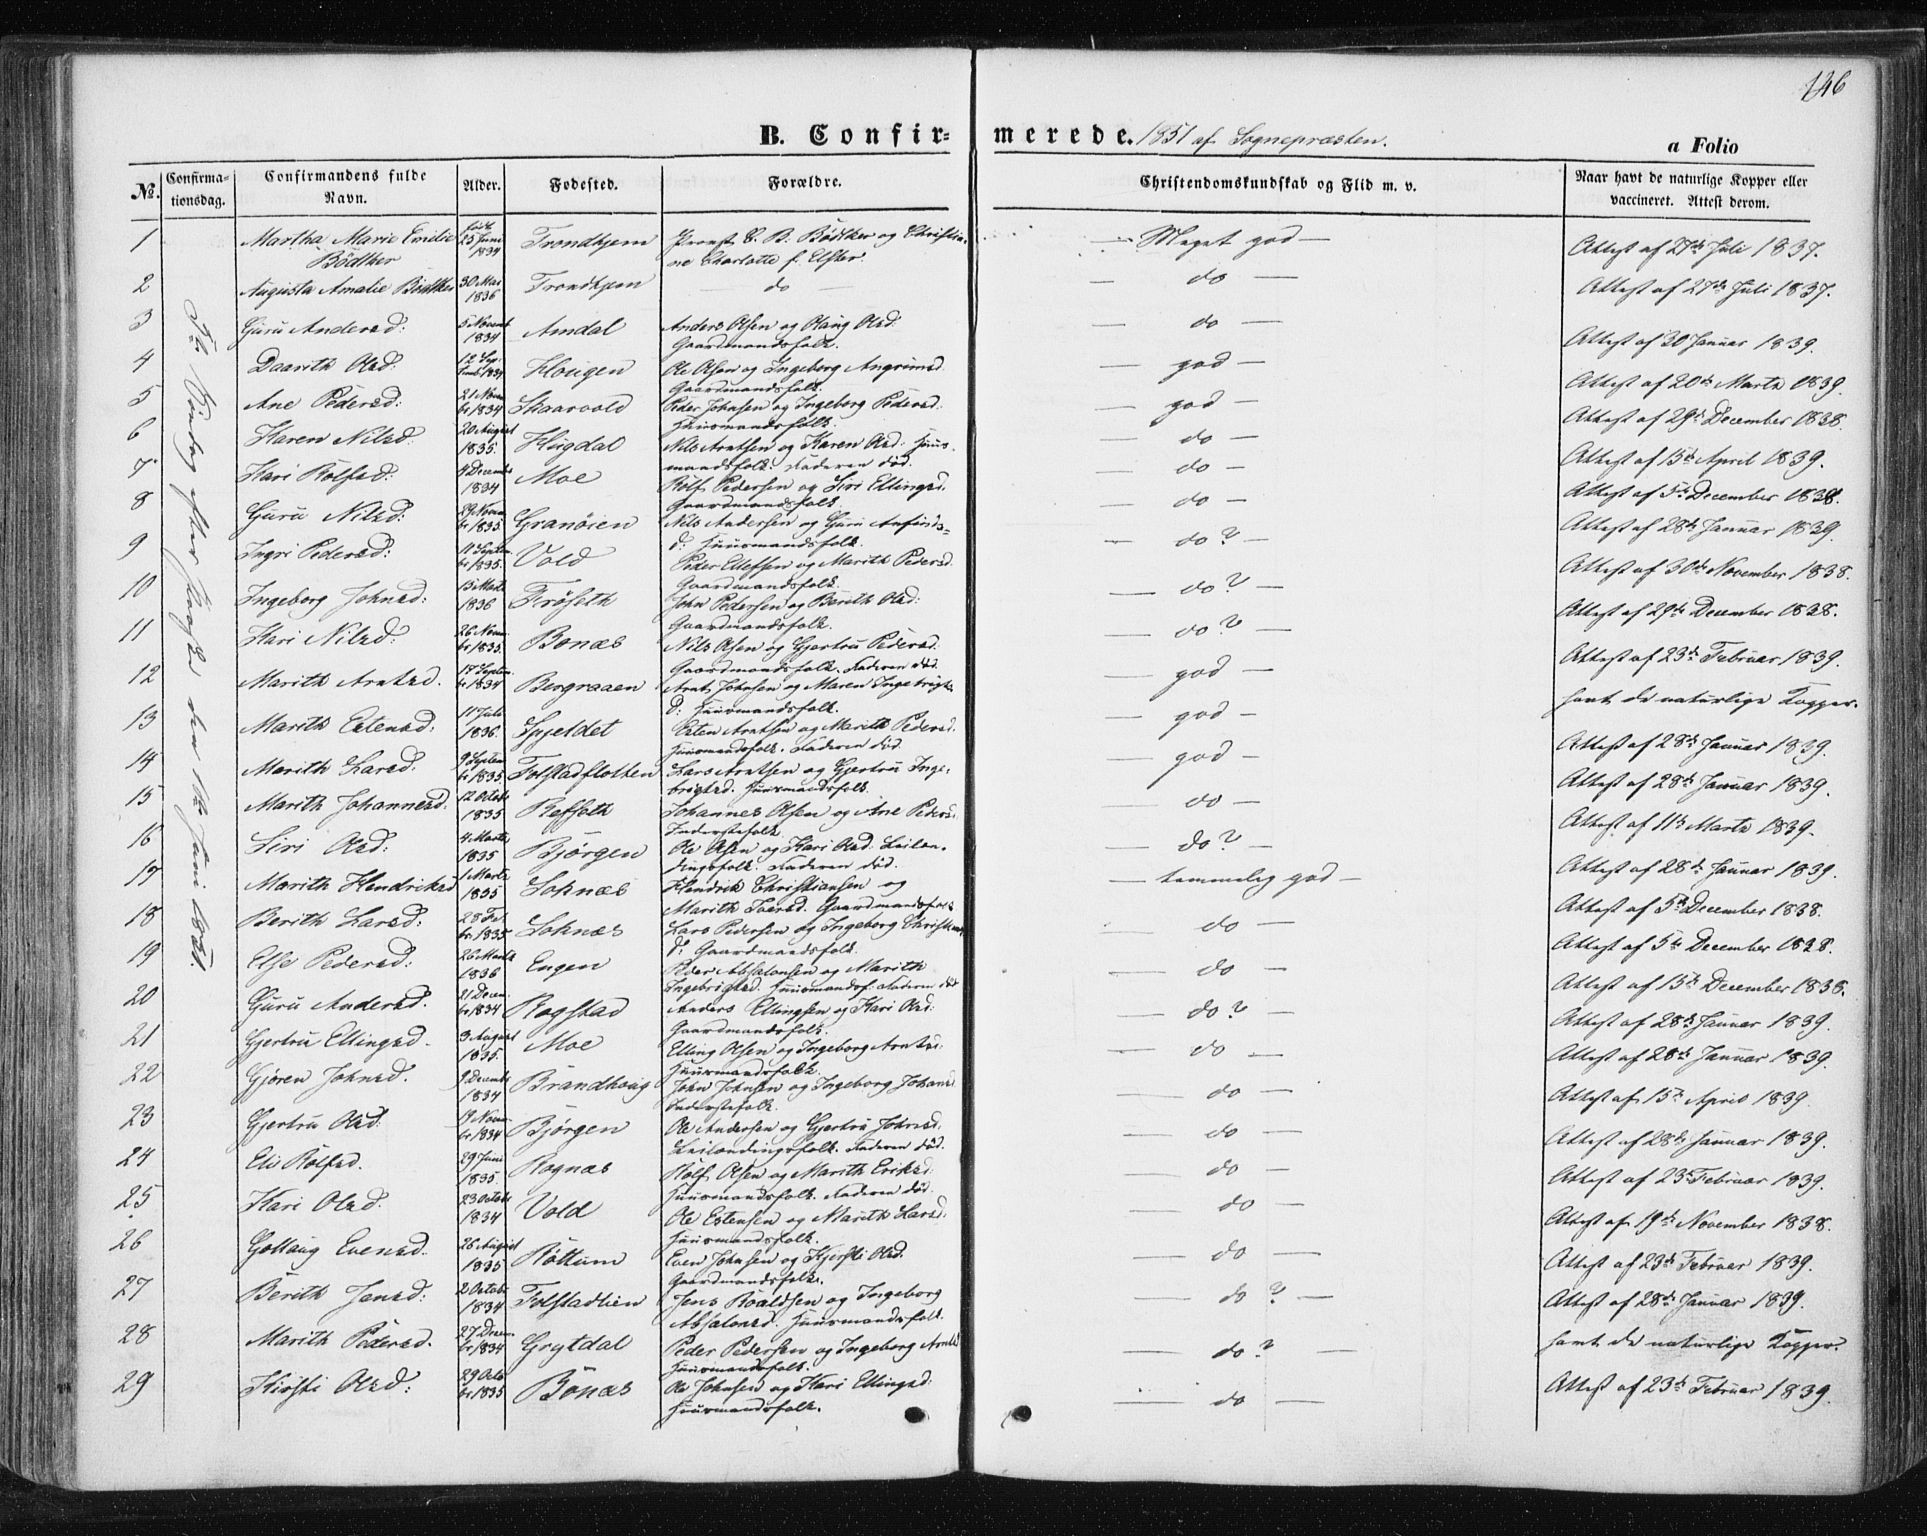 146
B. Confirmerede. 1851 af Sognepræsten.
a Folio
No. Confirmationsdag. Confirmandens fulde Navn. Alder. Fødested. Forældre. Christendomskundskab og Flid m. v. Naar havt de naturlige Kopper eller vaccineret. Attest derom.
1 Martha Marie Emilie Bödtker født 25 Juni 1834 Trondhjem Provst C. B. Bödtker og Christiane Charlotte f. Elster. — Meget god — Attest af 27de Juli 1837.
2 Augusta Amalie Bödtker 30 Mai 1836 Trondhjem do — do — Attest af 27de Juli 1837.
3 Guru Andersd: 5 Novemb 1834 Amdal Anders Olsen og Olaug Olsd: Gaardmandsfolk. — do — Attest af 20 Januar 1839.
4 Daarith Olsd: 12 Septemb 1834 Hougen Ole Olsen og Ingeborg Angrimsd. Gaardmandsfolk. — god — Attest af 20de Marts 1839.
5 Ane Pedersd: 21 Novembr 1834 Skaarvold Peder Johnsen og Ingeborg Pedersd: Huusmandsfolk. — god — Attest af 29de December 1838.
6 Karen Nilsd: 20 August 1835. Hugdal Nils Arntsen og Karen Olsd: Huusmandsfolk. Faderen död. — do — Attest af 15de April 1839.
7 Kari Rolfsd: 4 Decembr 1834 Moe Rolf Pedersen og Siri Ellingsd. Gaardmandsfolk. — do — Attest af 5te December 1838.
8 Guru Nilsd: 29 Novembr 1835. Granöien Nils Andersen og Guru Anfindsd: Huusmandsfolk. — do — Attest af 28de Januar 1839.
9 Ingri Pedersd: 11 Septembr 1835. Vold Peder Ellefsen og Marith Pedersd. Gaardmandsfolk. — do? — Attest af 30de November 1838.
10 Ingeborg Johnsd: 15 Marts 1836 Fröseth John Pedersen og Berith Olsd: Gaardmandsfolk. — do? — Attest af 29de December 1838.
11 Kari Nilsd: 26 Novembr 1835. Bonæs Nils Olsen og Gjertru Pedersd: Gaardmandsfolk. Faderen död. — do? — Attest af 23de Februar 1839.
12 Marith Arntsd. 17 Septembr 1834 Bergraaen Arnt Johnsen og Maren Ingebrigtsd: Huusmandsfolk. — god — havt de naturlige Kopper.
13 Marith Estensd: 11 Juli 1836. Spjeldet Esten Arntsen og Marith Pedersd. Huusmandsfolk. Faderen död. — god — Attest af 28de Januar 1839.
14 Marith Larsd: 9 Septembr 1835. Folstadflotten Lars Arntsen og Gjertru Ingebrigtsd. Huusmandsfolk. — god — Attest af 28de Januar 1839.
15 Marith Johannesd: 12 Octobr 1835 Refseth Johannes Olsen og Ane Pedersd: Inderstefolk. — do — Attest af 11te Marts 1839.
16 Siri Olsd: 4 Marts 1835 Björgen Ole Olsen og Kari Olsd. Leilændingsfolk. Faderen död. — do? — Attest af 28de Januar 1839.
17 Marith Hendriksd 1 Marts 1835 Lohnæs Hendrik Christiansen og Marith Iversd. Gaardmandsfolk — temmelig god — Attest af 5te December 1838.
18 Berith Larsd: 28 Febr. 1835 Lohnæs Lars Pedersen og Ingeborg Christiansd: Gaardmandsfolk. — do — Attest af 5te December 1838.
19 Else Pedersd: 26 Marts 1836 Engen Peder Absalonsen og Marith Ingebrigtsd. Huusmandsf. Faderen död — do — Attest af 15de December 1838.
20 Guru Andersd: 21 Decembr 1834 Rogstad Anders Ellingsen og Kari Olsd: Gaardmandsfolk. — do? — Attest af 28de Januar 1839.
21 Gjertru Ellingsd. 3 August 1835. Moe Elling Olsen og Ingeborg Arntsd: Huusmandsfolk. — do — Attest af 28de Januar 1839.
22 Gjören Johnsd. 9 Decembr 1834 Brandhoug John Johnsen og Ingeborg Johansd Inderstefolk. — do — Attest af 15de April 1839.
23 Gjertru Olsd: 19 Novembr 1834 Björgen Ole Andersen og Gjertru Johnsd. Leilændingsfolk. Faderen död. — do — Attest af 28de Januar 1839.
24 Eli Rolfsd. 29 Juni 1835. Rognæs Rolf Olsen og Marith Eriksd. Huusmandsfolk. Faderen död. — do — Attest af 23 Februar 1839.
25 Kari Olsd. 23 Octobr 1834 Vold Ole Estensen og Marith Larsd. Huusmandsfolk. — do — Attest af 19de November 1838.
26 Gollaug Evensd. 26 August 1835 Röttum Even Johnsen og Kjersti Olsd. Gaardmandsfolk. — do — Attest af 23de Februar 1839.
27 Berith Jensd: 2 Octobr 1834 Folstadlien Jens Roaldsen og Ingeborg Absalonsd. Huusmandsfolk. — do? — Attest af 28de Januar 1839.
28 Marith Pedersd. 27 Decembr 1834 Grytdal Peder Pedersen og Ingeborg Arntsd Huusmandsfolk. — do? — havt de naturlige Kopper.
29 Kirsti Olsd: 29 Octobr 1835 Bonæs Ole Johnsen og Kari Ellingsd: Huusmandsfolk. — do — Attest af 23de Februar 1839.